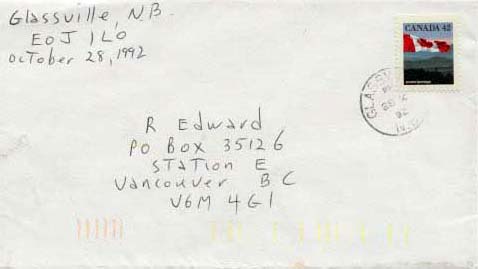 Glassville, N.B.
E0J 1L0
October 28, 1992
CANADA 42
R Edward
PO Box 35126
Station E
Vancouver BC
V6M 4G1